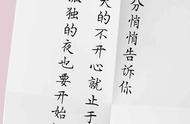 分悄悄告诉你
天的不开心就止于
独的夜也要开始